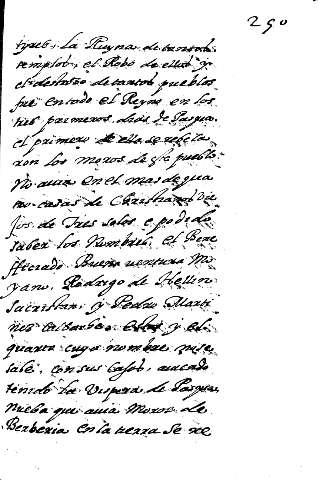 290
tyres, la Ruyna de tantos
templos, el Robo de ellos y
el destroço de tantos pueblos
fue en todo el Reyno en los
tres primeros dias de Pasqua.
el primero de ella se rebela
ron los moros de pueblo
No auia en el mas de qua
tro casas de Christianos Vie
jos de Tres solos e podido
saber los Nombres, el Bene
fficiado Buena ventura Mo
yano, Rodrigo de Hellin
sacristan, y Pedro Marti
nes y el
quarto cuyo nombre no se
sabe, con sus casas, auiendo
tenido la Vispera de Pasqua
nueba que auia Moros de
Berberia en la tierra Se re